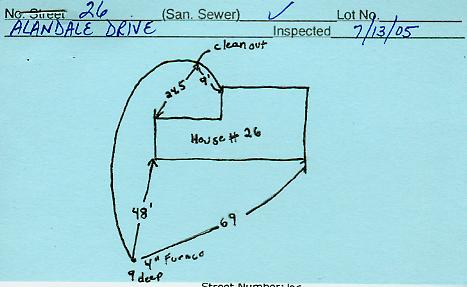 No. Street 26 (San. Sewer) ✓ Lot No.
ALANDALE DRIVE Inspected 7/13/05
cleanout
24.5 9'
House # 26
48'
69
4" Fernco
9 deep